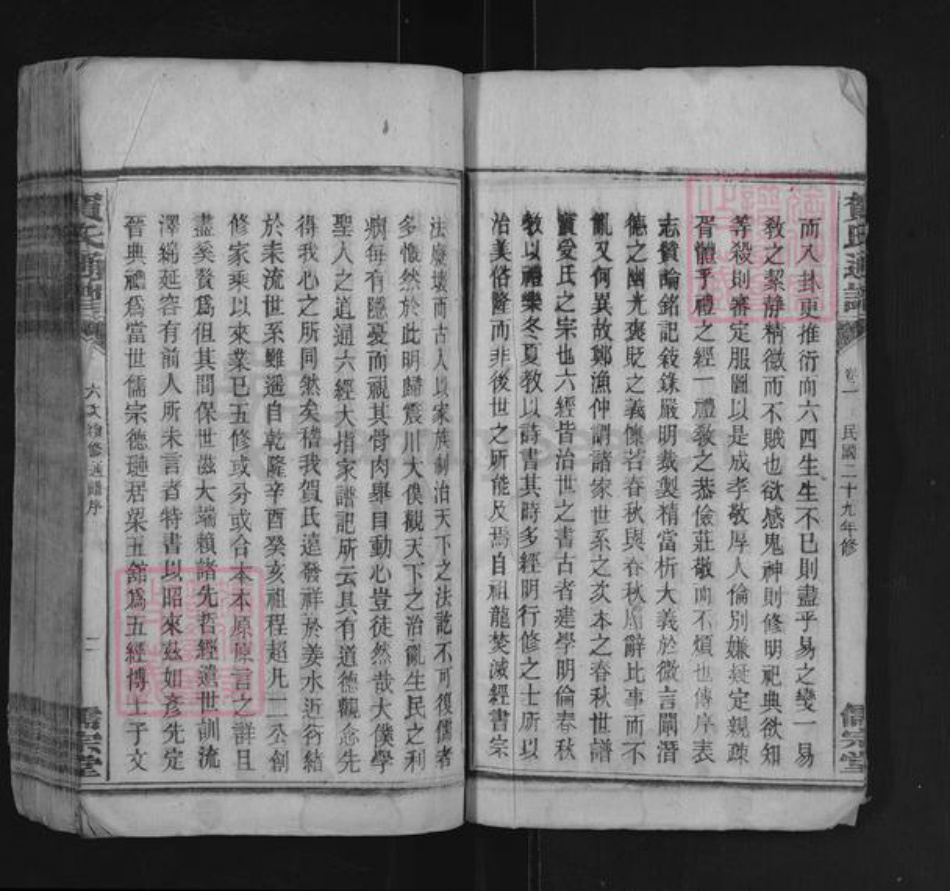 賀氏通譜
卷一 民國二十九年修
儒宗堂
而八卦更推衍而六四生生不已則盡乎易之變一易
教之絜靜精微而不賊也欲感鬼神則修明祀典欲知
等殺則審定服圖以是成孝敬厚人倫別嫌疑定親疎
胥體乎禮之經一禮教之恭儉莊敬而不煩也傳序表
志贊論銘記敍錄嚴明裁製精當析大義於微言闡潛
德之幽光褒貶之義儼若春秋與春秋屬辭比事而不
亂又何異故鄭漁仲謂諸家世系之次本之春秋世譜
實受氏之宗也六經皆治世之書古者建學明倫春秋
教以禮樂冬夏教以詩書其時多經明行修之士所以
治美俗隆而非後世之所能及焉自祖龍焚滅經書宗
法廢壞而古人以家族制治天下之法訖不可復儒者
多慨然於此明歸震川大僕觀天下之治亂生民之利
病每有隱憂而視其骨肉舉目動心豈徒然哉大僕學
聖人之道通六經大指家譜記所云具有道德觀念先
得我心之所同然矣稽我賀氏遠發祥於姜水近衍結
於耒流世系雖遞自乾隆辛酉癸亥祖程超凡二公創
修家乘以來業已五修或分或合本本原原言之詳且
盡奚贅爲但其間保世滋大端賴諸先哲經遺世訓流
澤綿延容有前人所未言者特書以昭來茲如彥先定
晉典禮爲當世儒宗德璉居梁五館爲五經博士子文
賀氏通譜
六次續修通譜序
二
儒宗堂